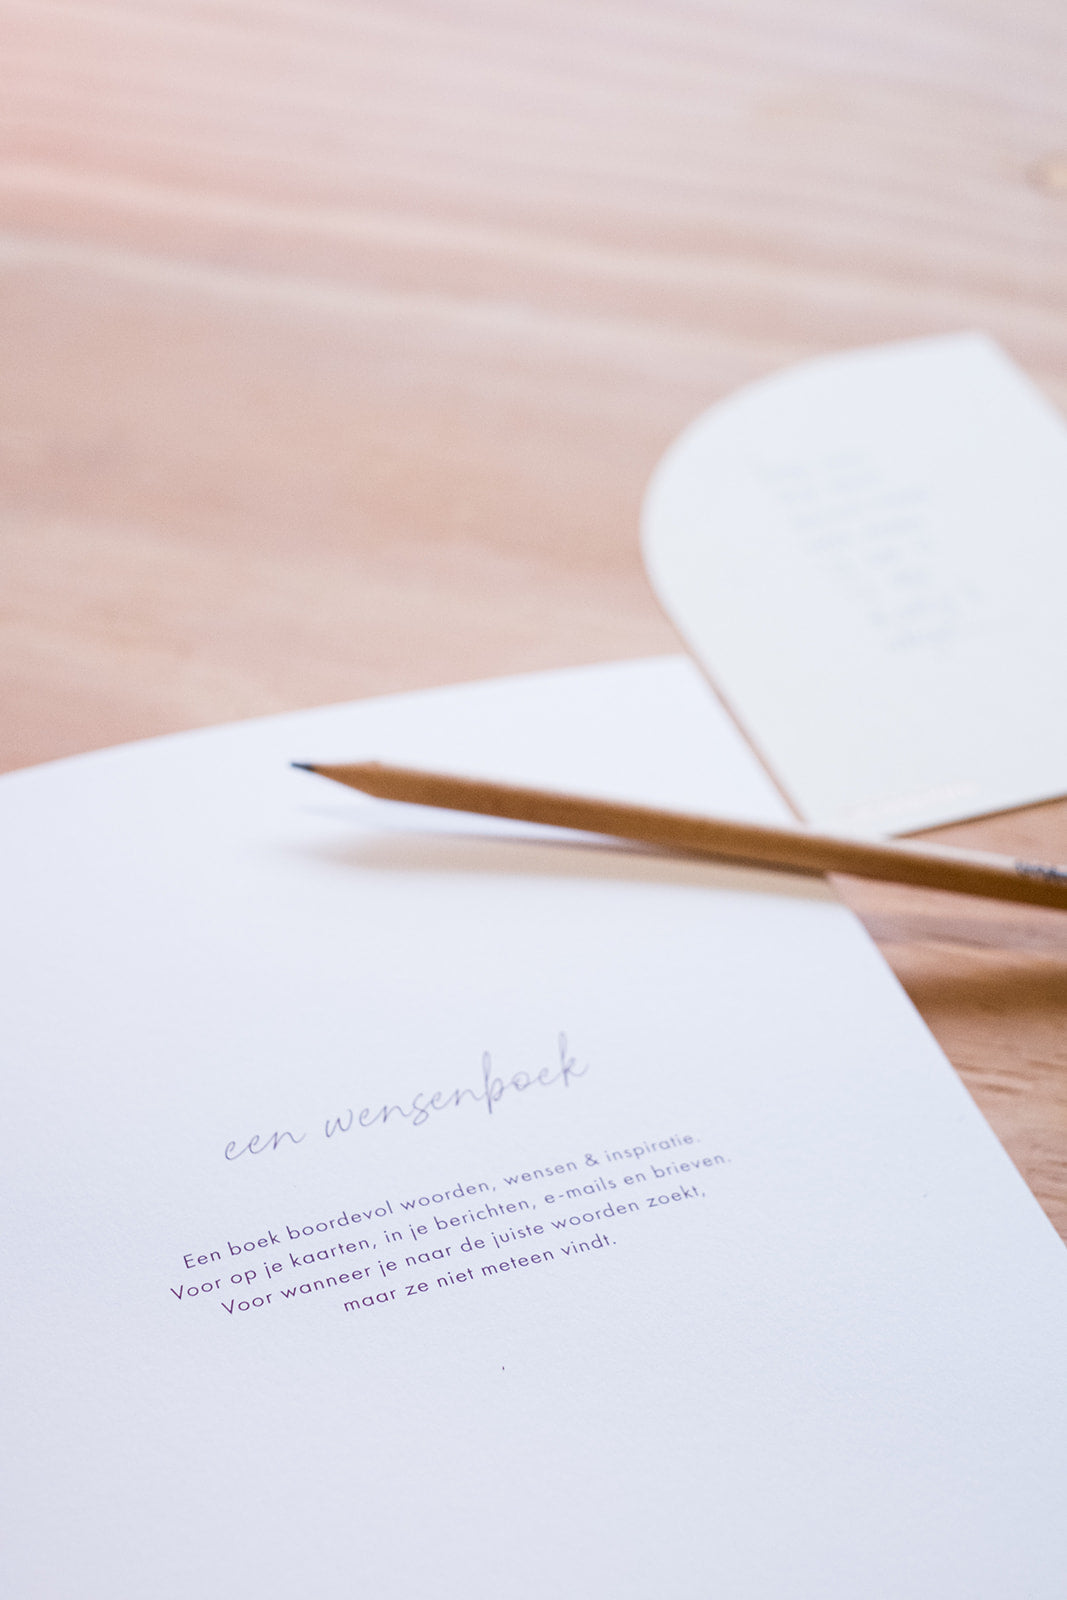 een wensenboek
Een boek boordevol woorden, wensen & inspiratie.
Voor op je kaarten, in je berichten, e-mails en brieven.
Voor wanneer je naar de juiste woorden zoekt,
maar ze niet meteen vindt.